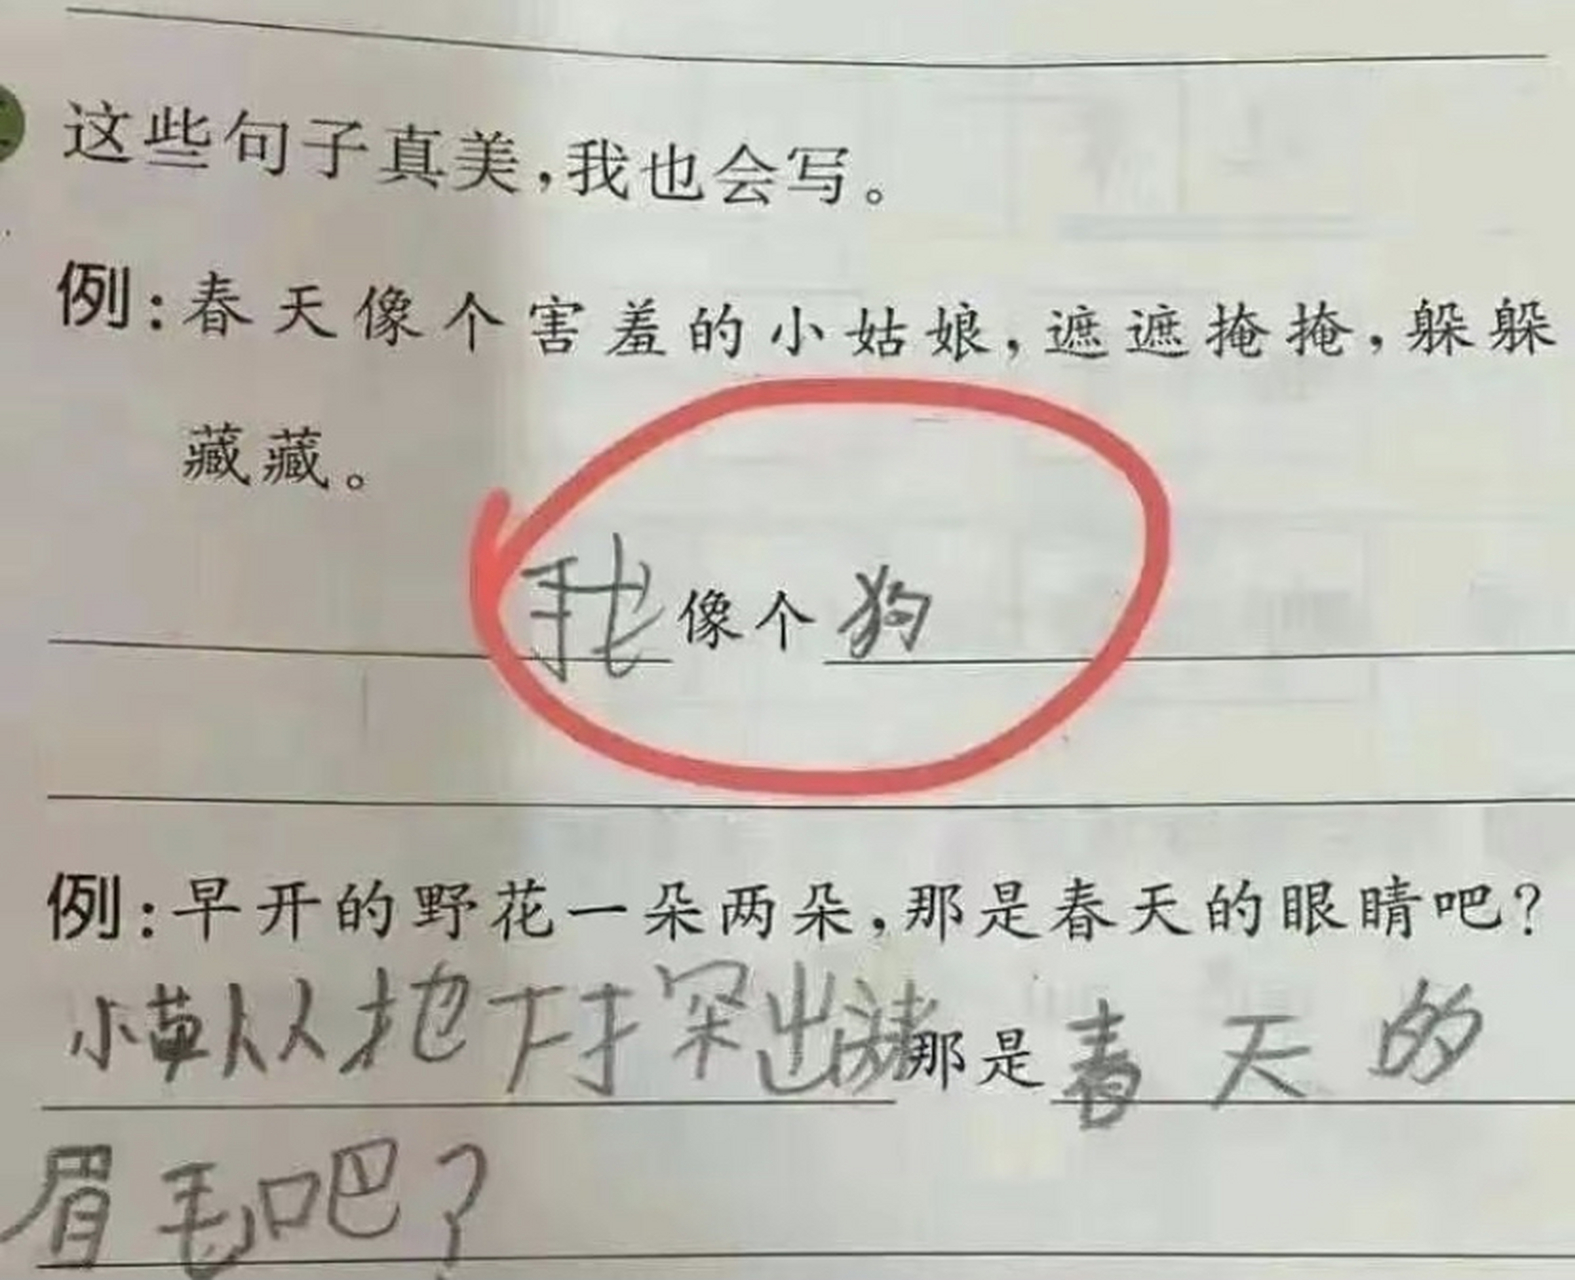 这些句子真美,我也会写。
例:春天像个害羞的小姑娘,遮遮掩掩,躲躲
藏藏。
我像个狗
例:早开的野花一朵两朵,那是春天的眼睛吧?
小草从地下探出来那是春天的
眉毛吧?